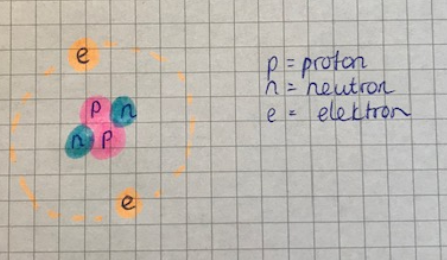 e
p n
n p
e
p = proton
n = neutron
e = elektron